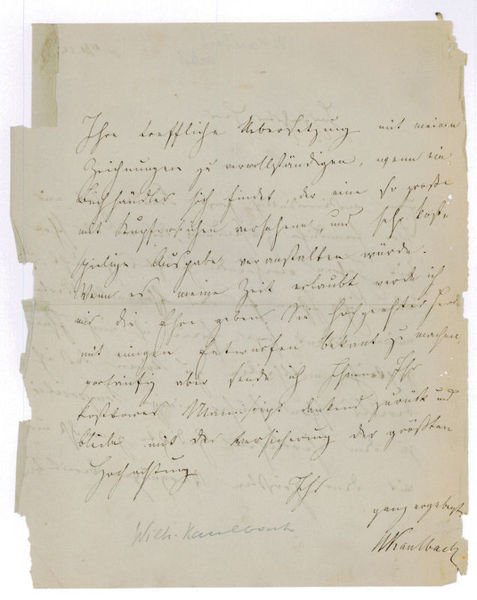 Ihre treffliche Uebersetzung mit meinen
Zeichnungen zu vervollständigen, wenn ein
Buchhändler sich findet der eine so große
mit Kupferstichen versehene, und sehr kost-
spielige Ausgabe veranstalten würde.
Wenn es meine Zeit erlaubt werde ich
mir die Ehre geben Sie hochgeehrter
mit einigen Entwürfen bekant zu machen,
vorläufig aber sende ich Ihnen Ihr
kostbares Manuscript dankend zurück und
bleibe mit der Versicherung der größten
Hochachtung
Ihr
ganz ergebenst
WKaulbach
Wilh. Kaulbach